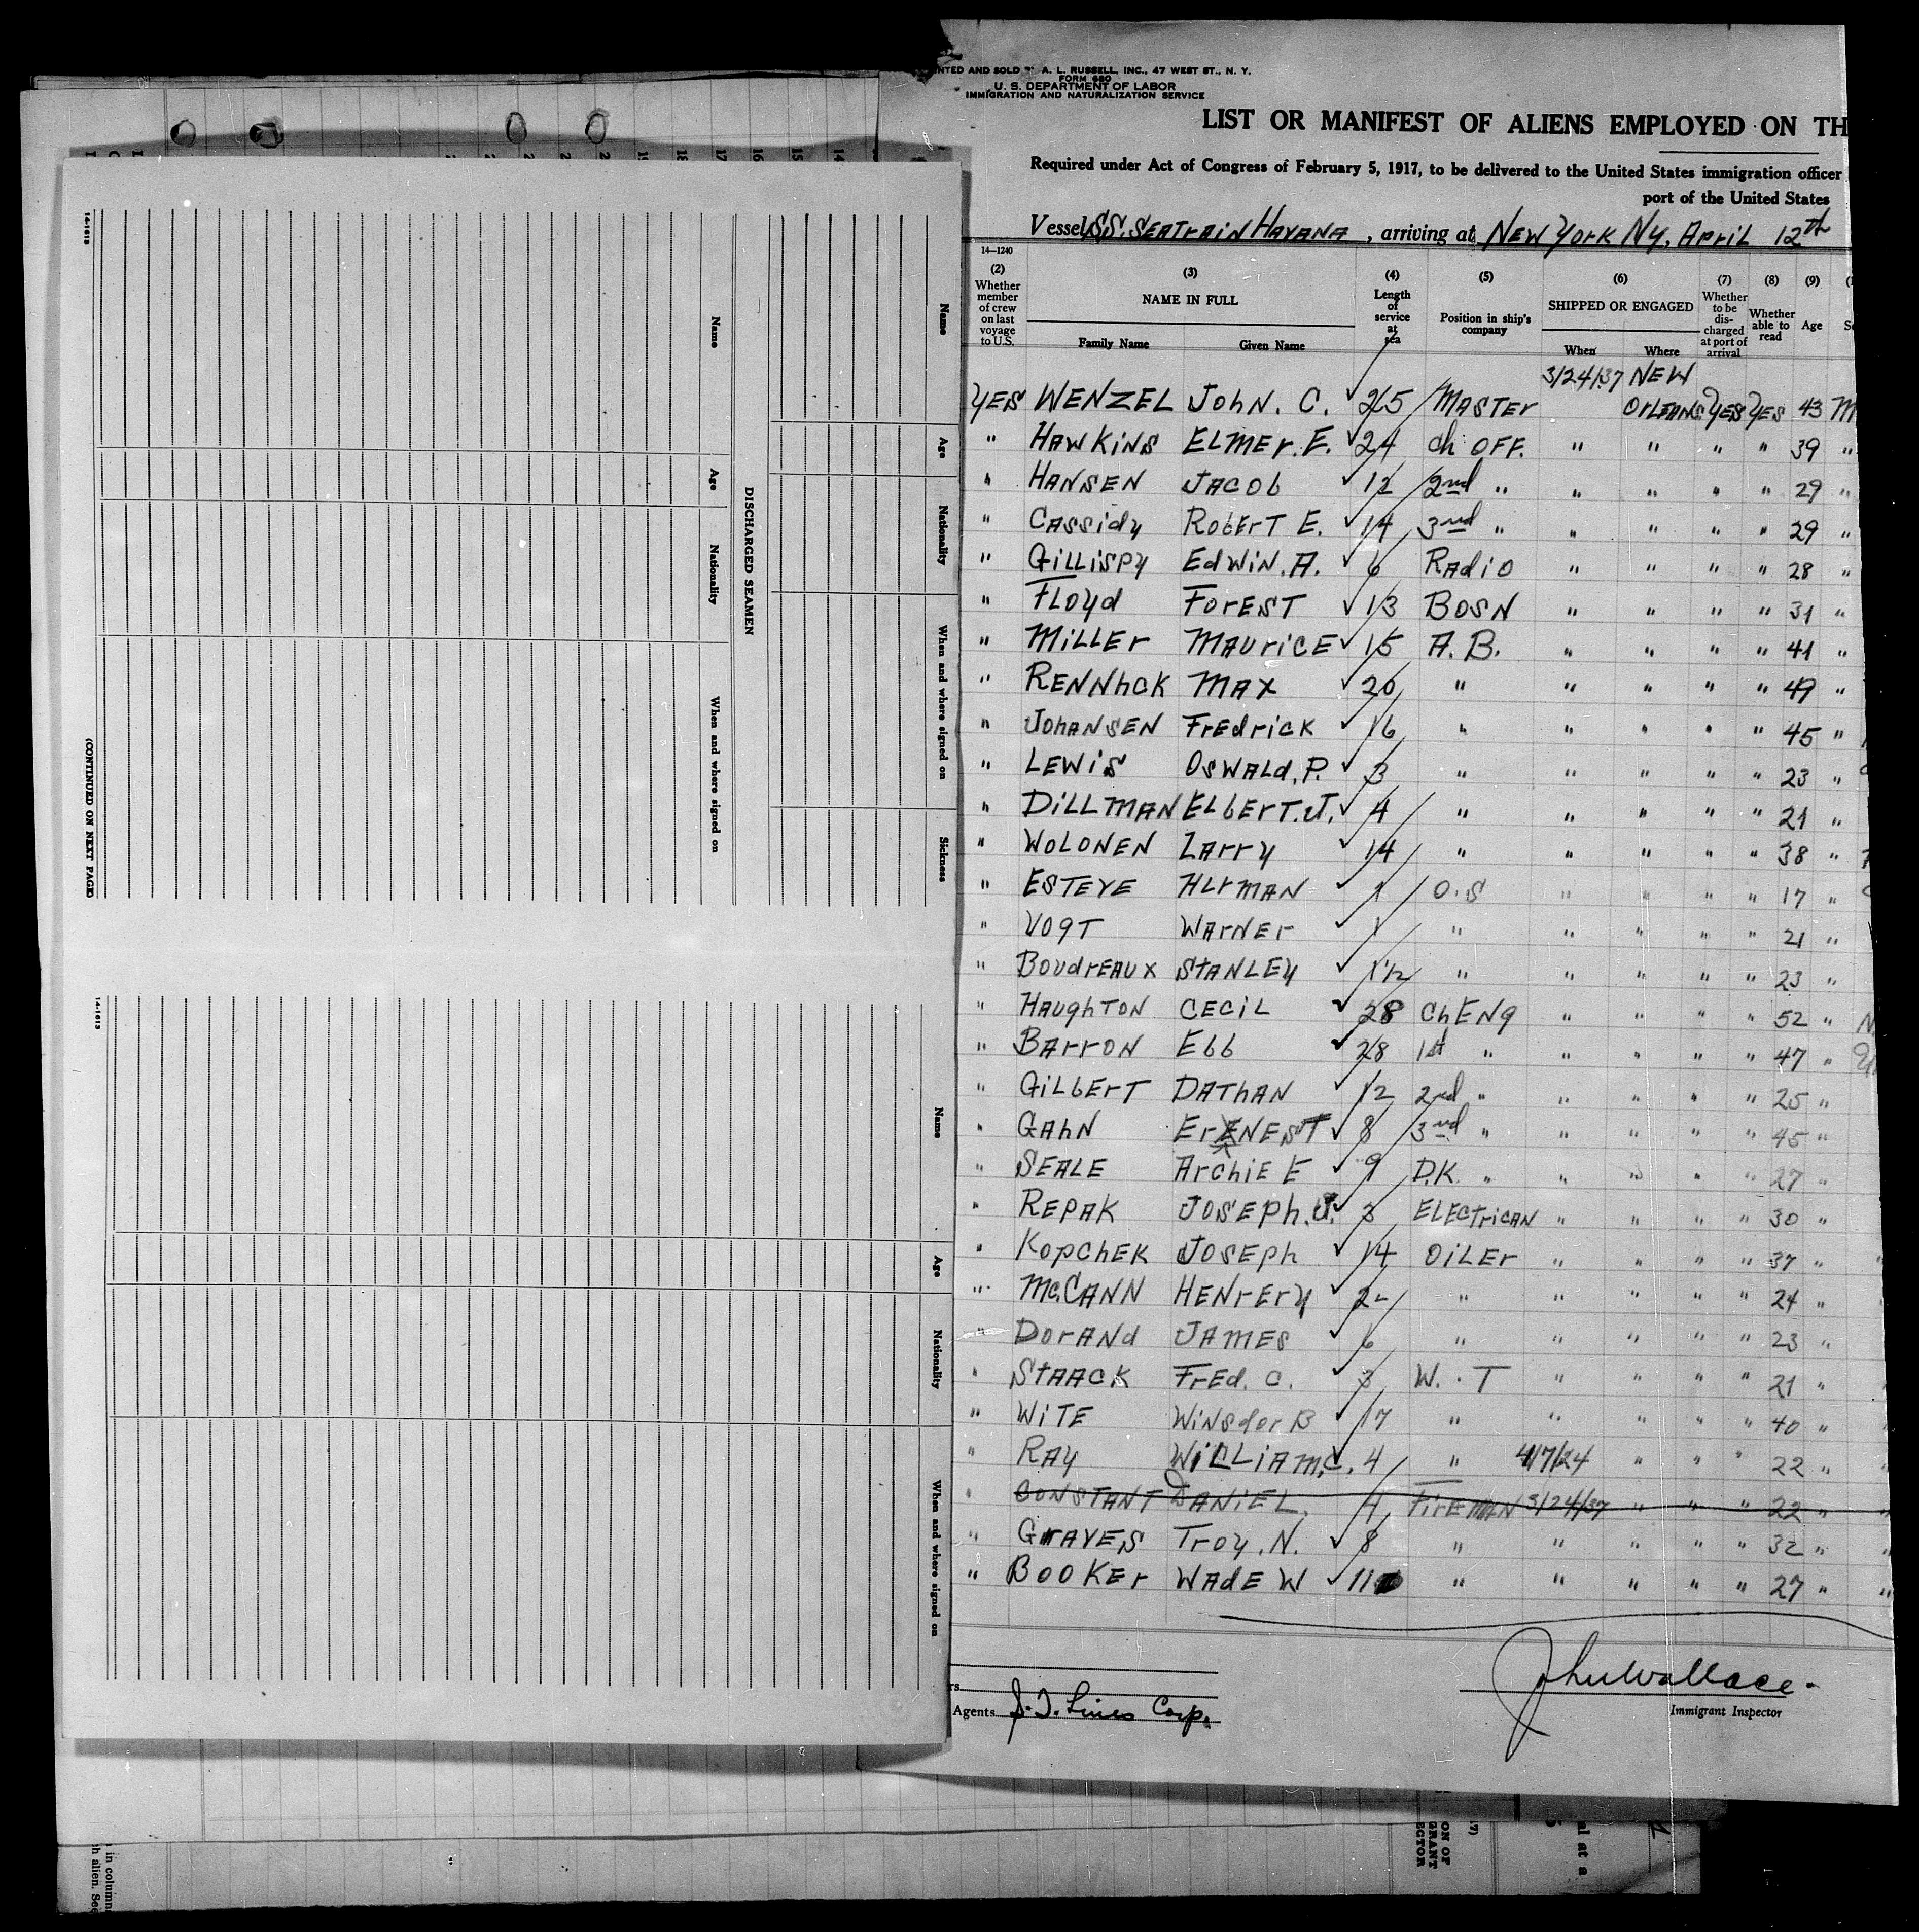 PRINTED AND SOLD BY A. L. RUSSELL, INC., 47 WEST ST., N. Y.
FORM 680
U. S. DEPARTMENT OF LABOR
IMMIGRATION AND NATURALIZATION SERVICE
LIST OR MANIFEST OF ALIENS EMPLOYED ON TH
Required under Act of Congress of February 5, 1917, to be delivered to the United States immigration officer
port of the United States
Vessel SS. SEATrAIN HAVANA, arriving at NEW YOrK NY. APriL 12th
14—1240
(2) Whether member of crew on last voyage to U.S.
(3) NAME IN FULL
Family Name Given Name
(4) Length of service at sea
(5) Position in ship's company
(6) SHIPPED OR ENGAGED
When Where
(7) Whether to be discharged at port of arrival
(8) Whether able to read
(9) Age
3/24/37 NEW
YES WENZEL JOhN. C. 25 MASTEr OrLEANS YES YES 43 M
" HAWKiNS ELMEr. E. 24 Ch OFF. " " " " 39 "
" HANSEN JACOb 12 2nd " " " " " 29 "
" CASSidy RObErT E. 14 3rd " " " " " 29 "
" GiLLiSPY EdWiN. A. 6 RAdiO " " " " 28 "
" FLOyd FOrEST 13 BOSN " " " " 31 "
" MiLLEr MAUriCE 15 A. B. " " " " 41 "
" RENNhCK MAX 20 " " " " " 49 "
" JOhANSEN FrEdriCK 16 " " " " " 45 "
" LEWiS OSWALd. P. 3 " " " " " 23 "
" DiLLMAN ELbErT. J. 4 " " " " " 21 "
" WOLONEN LArry 14 " " " " " 38 "
" ESTEVE HErMAN 1 O. S " " " " 17 "
" VOgT WArNEr 1 " " " " " 21 "
" BOUdrEAUX STANLEy 1 1/2 " " " " " 23 "
" HAUghTON CECiL 28 Ch ENg " " " " 52 " N
" BArrON Ebb 28 1st " " " " " 47 "
" GiLbErT DAThAN 12 2nd " " " " " 25 "
" GAhN ErNEST 8 3rd " " " " " 45 "
" SEALE ArchiE E 9 D.K. " " " " " 27 "
" REPAK JOSEPh. J. 3 ELECTriCAN " " " " 30 "
" KOpChEK JOSEph 14 OiLEr " " " " 37 "
" McCANN HENrEry 2- " " " " " 24 "
" DOrANd JAMES 6 " " " " " 23 "
" STAACK FrEd. C. 3 W. T " " " " 21 "
" WiTE WiNSdor B 17 " " " " " 40 "
" RAy WiLLIAM. C. 4 " 4/7/24 " " " 22 "
" CONSTANT DANiEL. 4 FirEMAN 3/24/37 " " " 22 "
" GrAVES TrOy. N. 8 " " " " " 32 "
" BOOKEr WAdE W 11 " " " " " 27 "
Agents S. T. Lines Corp.
John Wallace
Immigrant Inspector
14-1613
Name Age Nationality When and where signed on Sickness
DISCHARGED SEAMEN
Name Age Nationality When and where signed on
(CONTINUED ON NEXT PAGE)
14-1613
Name Age Nationality When and where signed on
in column
h alien. See